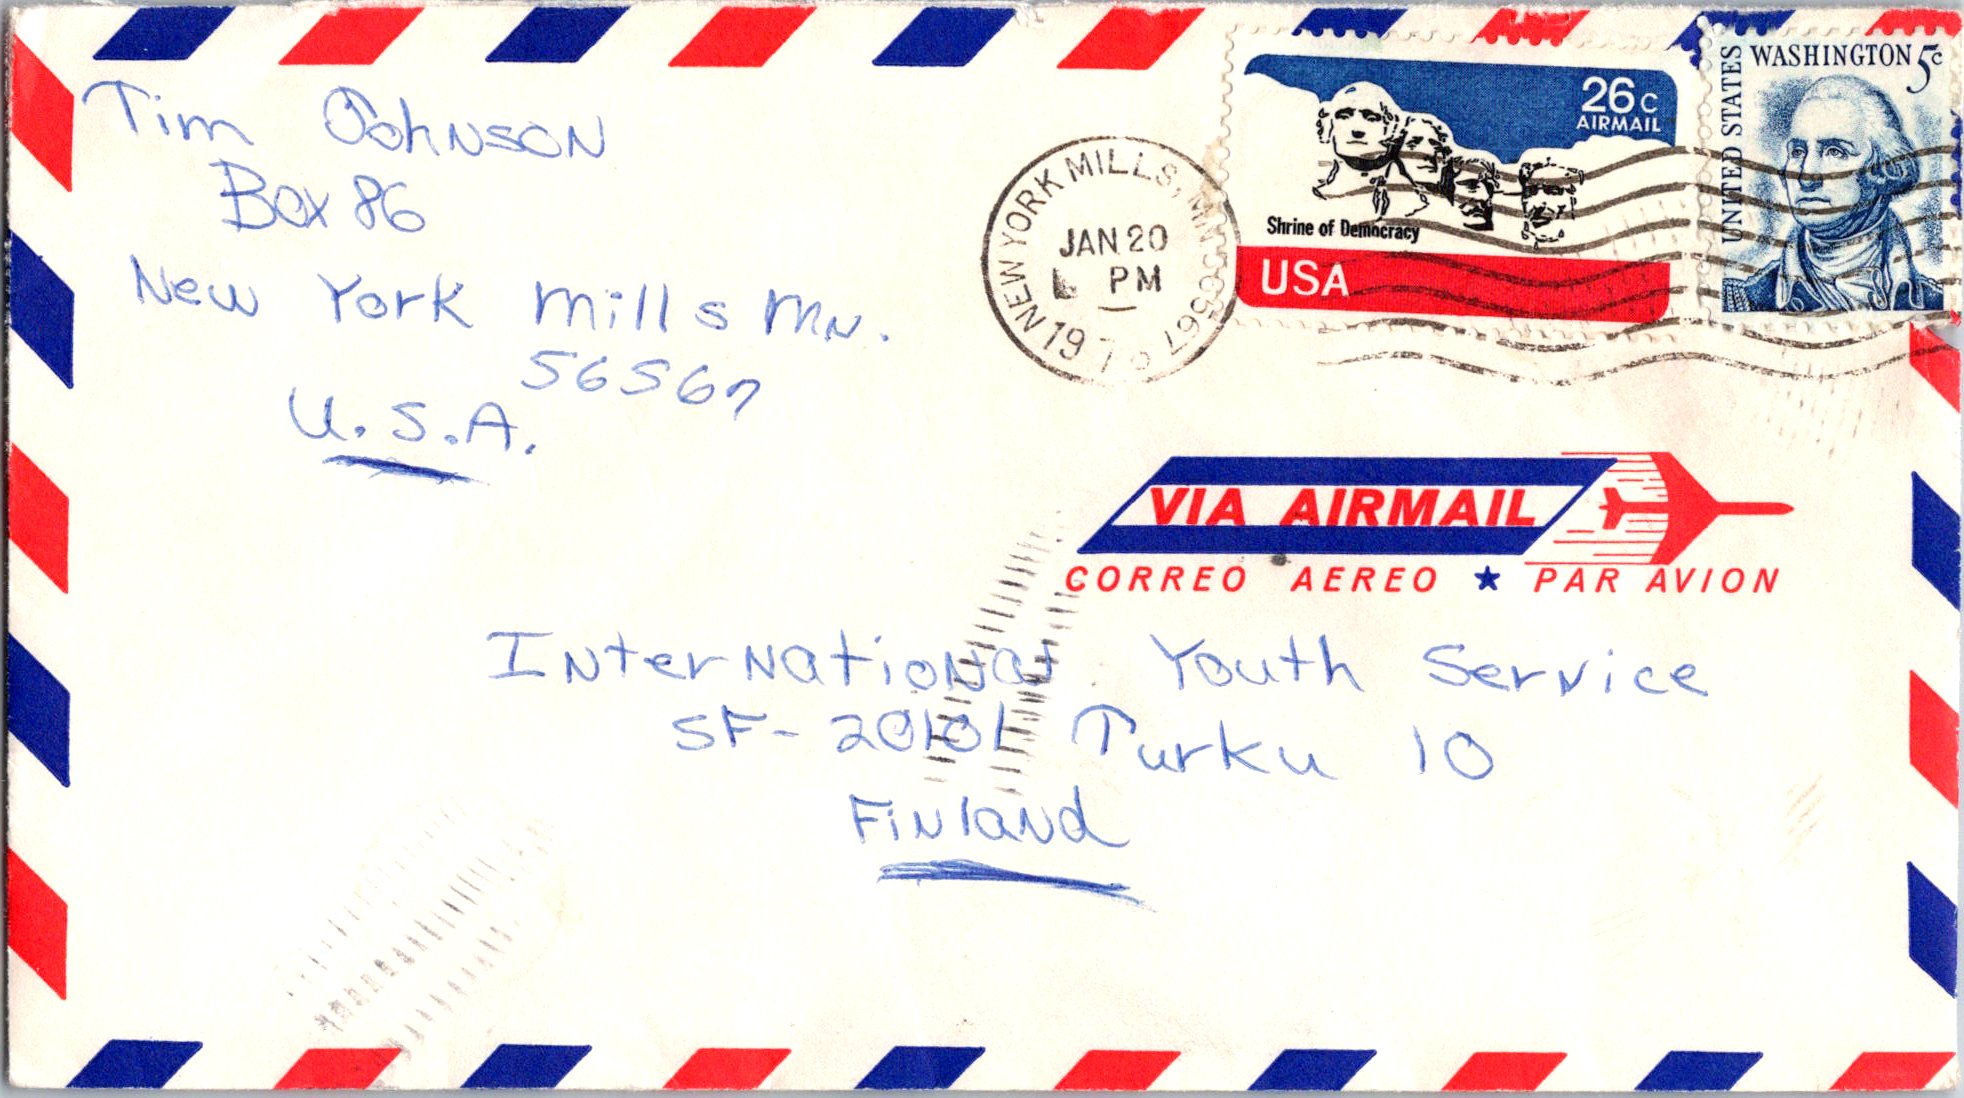 Tim Johnson
Box 86
New York Mills Mn.
56567
U.S.A.
NEW YORK MILLS, MN 56567
JAN 20
PM
26c
AIRMAIL
Shrine of Democracy
USA
UNITED STATES
WASHINGTON 5c
VIA AIRMAIL
CORREO AEREO ★ PAR AVION
International Youth Service
SF-20101 Turku 10
Finland